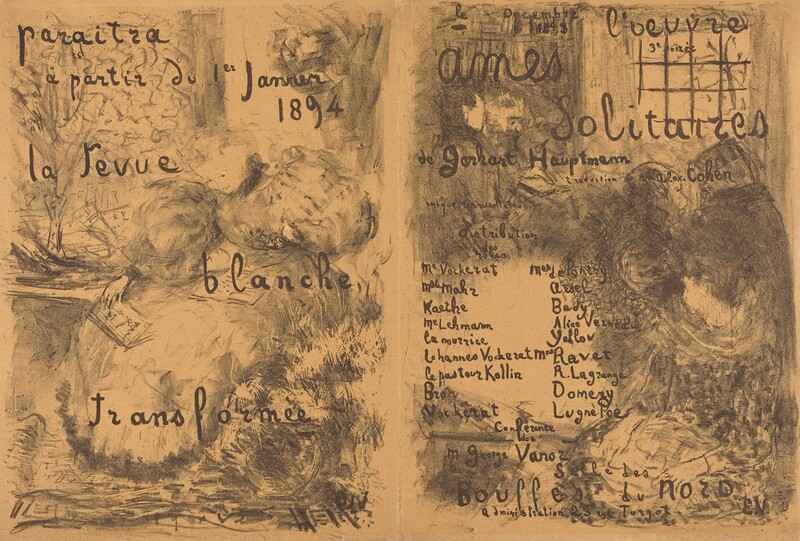 paraitra
à partir du 1er Janvier
1894
la revue
blanche
transformée
le Décembre 1893
l'oeuvre
3e soirée
ames
Solitaires
de Gerhart Hauptmann
traduction de Mr Alex. Cohen
unique représentation
distribution
des
roles
Me Vockerat Mmes de Pontry
Mlle Mahr
Kaethe Bady
Me Lehmann Alice Verneau
la nourrice
Iohannes Vockerat Mrs Ravet
le pasteur Kollin R. Lagrange
Bron Domeny
Vockerat Lugné Poe
Conférence
de
Mr George Vanor
Salle des
Bouffes du NORD
administration 23 rue Turgot
EV